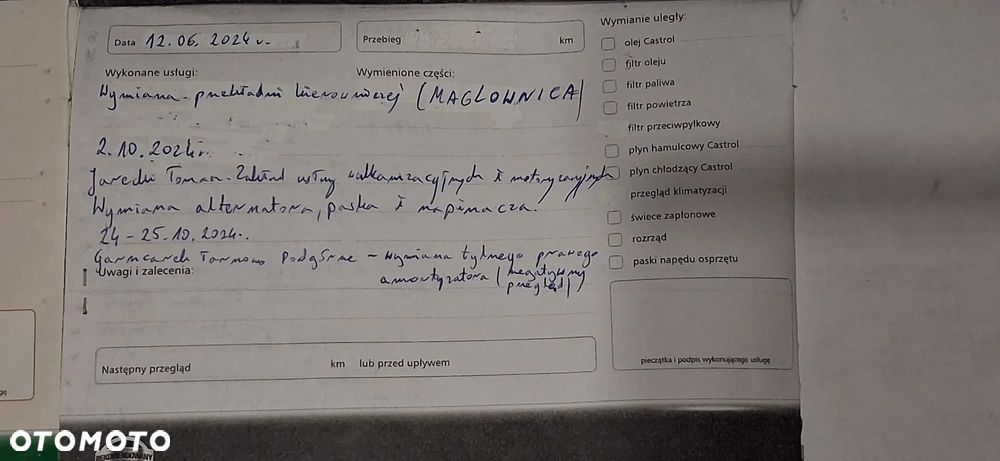 Data 12.06.2024r.
Przebieg km
Wykonane usługi:
Wymienione części:
Wymiana przekładni kierowniczej (MAGLOWNICA)
2.10.2024r.
Toman - Zakład usług wulkanizacyjnych i motoryzacyjnych
Wymiana alternatora, paska i napinacza.
24-25.10.2024r.
Garncarek Tarnowo Podgórne - wymiana tylnego prawego
Uwagi i zalecenia:
amortyzatora (negatywny
przegląd)
Następny przegląd km lub przed upływem
Wymianie uległy:
olej Castrol
filtr oleju
filtr paliwa
filtr powietrza
filtr przeciwpyłkowy
płyn hamulcowy Castrol
płyn chłodzący Castrol
przegląd klimatyzacji
świece zapłonowe
rozrząd
paski napędu osprzętu
pieczątka i podpis wykonującego usługę
OTOMOTO
REKOMENDOWANY